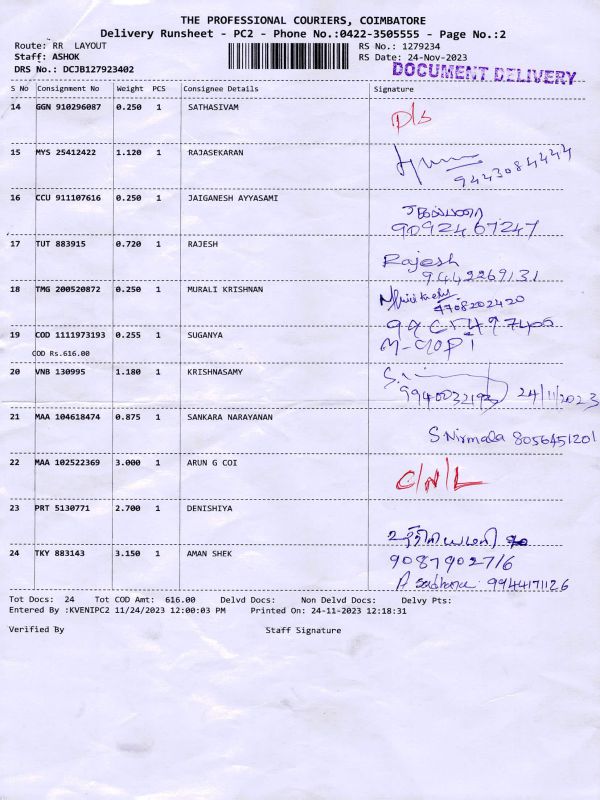 THE PROFESSIONAL COURIERS, COIMBATORE
Delivery Runsheet - PC2 - Phone No.:0422-3505555 - Page No.:2
Route: RR LAYOUT RS No.: 1279234
Staff: ASHOK RS Date: 24-Nov-2023
DRS No.: DCJB127923402 DOCUMENT DELIVERY
S No Consignment No Weight PCS Consignee Details Signature
14 GGN 910296087 0.250 1 SATHASIVAM D/S
15 MYS 25412422 1.120 1 RAJASEKARAN
9443084444
16 CCU 911107616 0.250 1 JAIGANESH AYYASAMI
9092467247
17 TUT 883915 0.720 1 RAJESH Rajesh
9442269131
18 TMG 200520872 0.250 1 MURALI KRISHNAN
9708202420
19 COD 1111973193 0.255 1 SUGANYA
M-GOPI
COD Rs.616.00
20 VNB 130995 1.180 1 KRISHNASAMY
24/11/2023
21 MAA 104618474 0.875 1 SANKARA NARAYANAN
S.Nirmala 8056451201
22 MAA 102522369 3.000 1 ARUN G COI C/N/L
23 PRT 5130771 2.700 1 DENISHIYA
24 TKY 883143 3.150 1 AMAN SHEK 9087902716
A sadhana 9944171126
Tot Docs: 24 Tot COD Amt: 616.00 Delvd Docs: Non Delvd Docs: Delvy Pts:
Entered By :KVENIPC2 11/24/2023 12:00:03 PM Printed On: 24-11-2023 12:18:31
Verified By Staff Signature